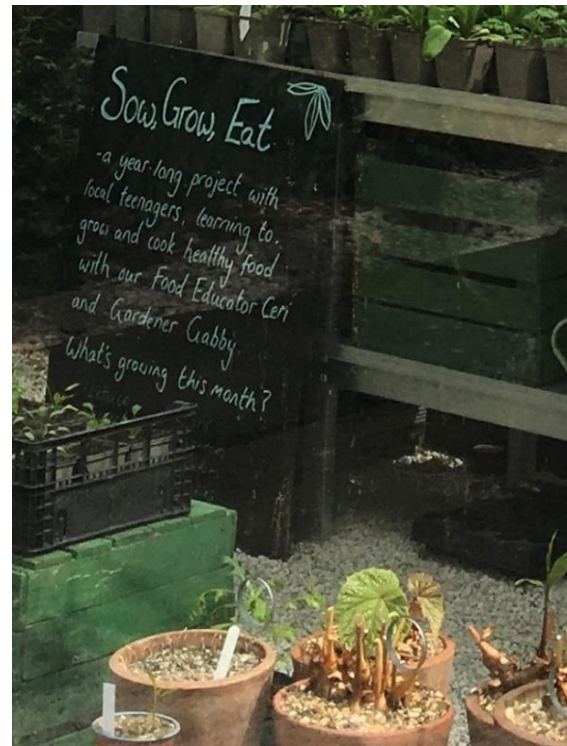 Sow, Grow, Eat
-a year-long project with
local teenagers, learning to
grow and cook healthy food
with our Food Educator Ceri
and Gardener Gabby.
What's growing this month?